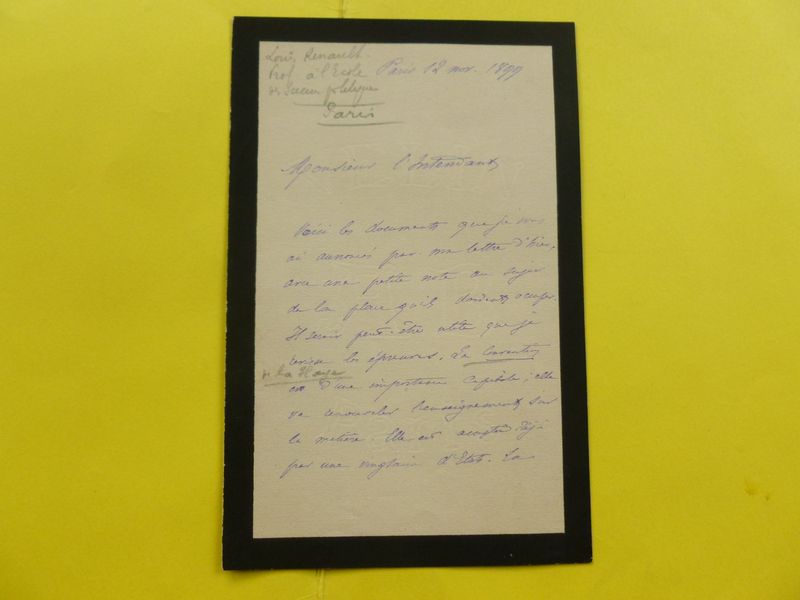 Louis Renault.
Prof à l'Ecole
Paris
Paris 12 nov. 1899
Monsieur l'Intendant
Voici les documents que je vous
ai annoncés par ma lettre d'hier,
avec une petite note au sujet
de la place qu'ils doivent occuper.
Il serait peut-être utile que je
les épreuves. La Convention
de La Haye
est d'une importance capitale ; elle
va renouveler l'enseignement sur
la matière. Elle est acceptée déjà
par une vingtaine d'Etats. La